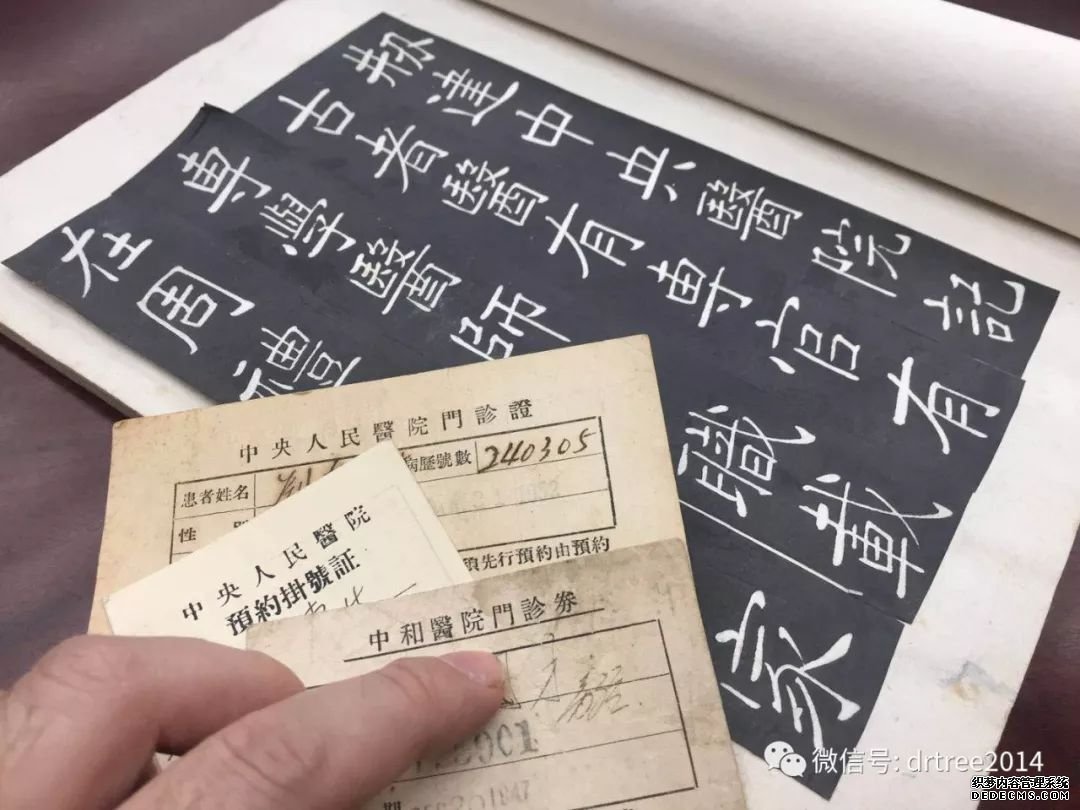 剏建中央醫院記
古者醫有專官有
專學醫師
職載
在周禮
家
中央人民醫院門診證
患者姓名
病歷號數 240305
性
先行預約由預約
中央人民醫院
預約掛號証
中和醫院門診券
微信号: drtree2014
织梦内容管理系统
DEDECMS.COM